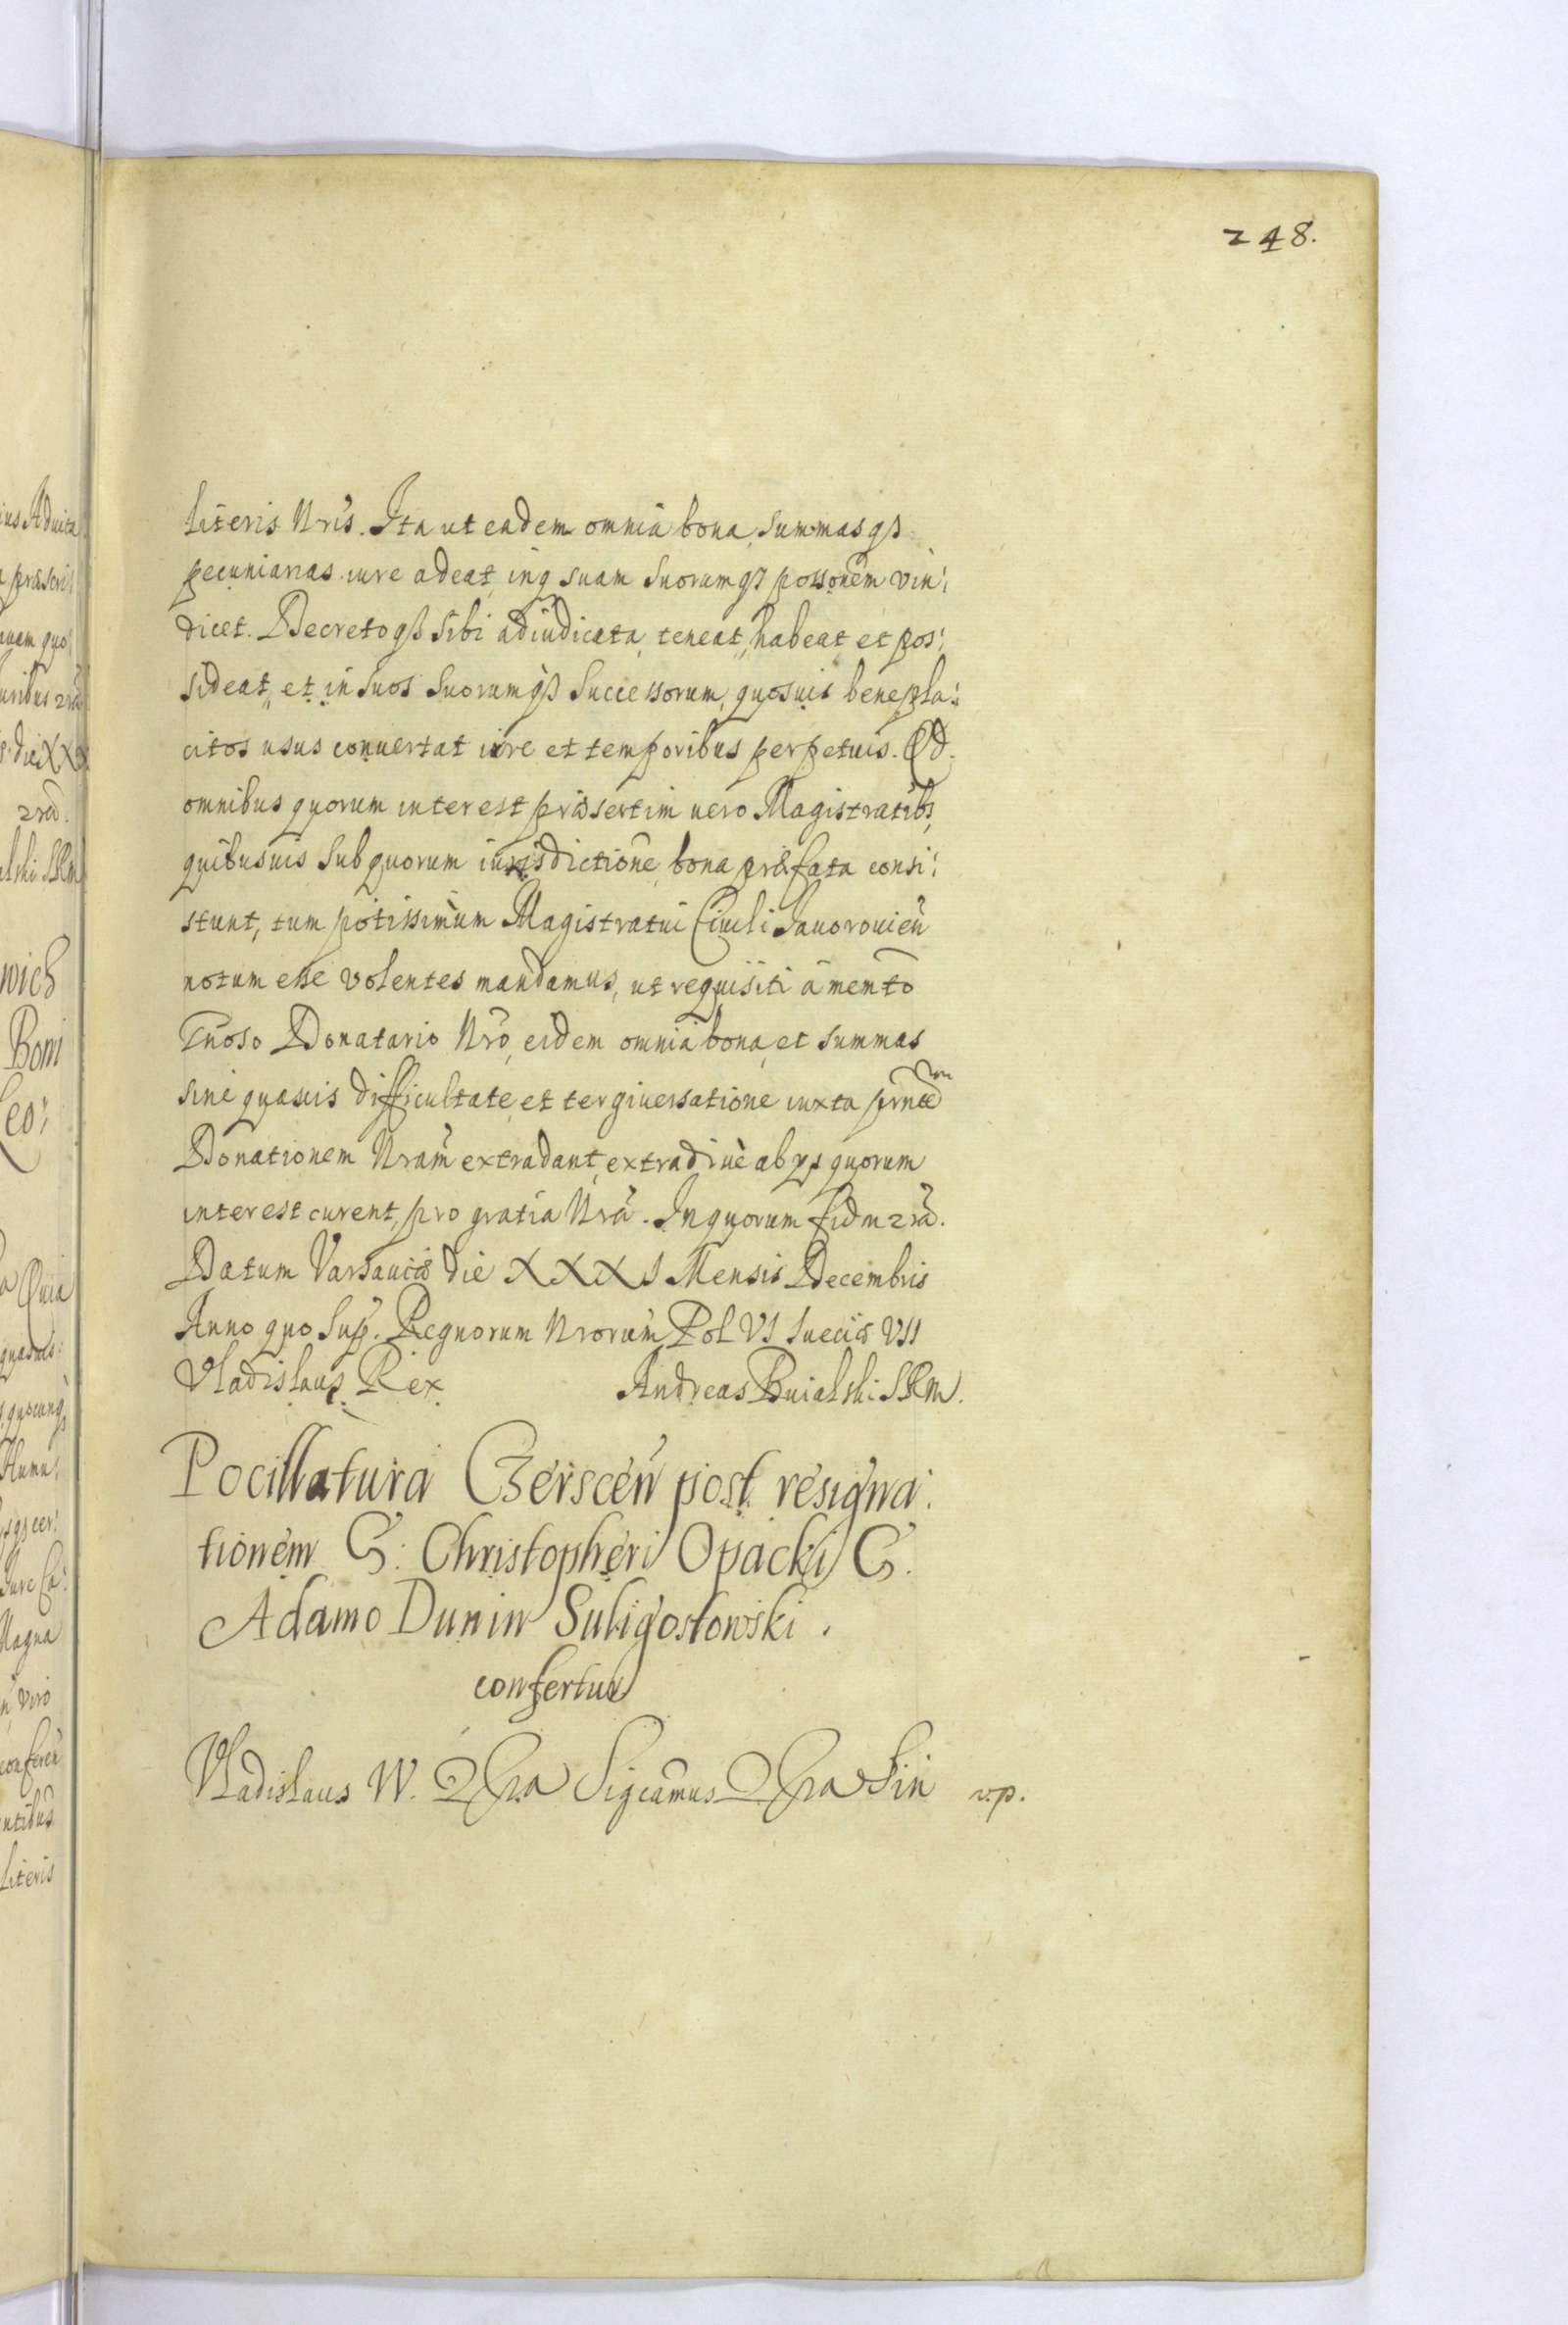 248.
literis Nris. Ita ut eadem omnia bona, summasqȝ
pecuniarias iure adeat, inq suam suorumqȝ possonem vin:
dicet. Decretoqȝ sibi adiudicata, teneat, habeat et pos:
sideat, et in suos suorumqȝ successorum, quosuis benepla:
citos usus conuertat iure et temporibus perpetuis. Qd.
omnibus quorum interest præsertim uero Magistratibȝ,
quibusuis sub quorum iurisdictione bona præfata consi:
stunt, tum potissimum Magistratui Ciuili Jauorouień
notum esse volentes mandamus, ut requisiti a mento
Gnoso Donatario Nro, eidem omnia bona, et summas
sine quauis difficultate, et tergiuersatione iuxta prntem
Donationem Nram extradant, extradiuè ab ys quorum
interest curent, pro gratia Nra. In quorum fidm 2rã.
Datum Varsauiæ die XXXI Mensis Decembris
Anno quo Sup. Regnorum Nrorum Pol VI Sueciæ VII
Vladislaus Rex. Andreas Buialski SRM.
Pocillatura Czersceń post resigna:
tionem G: Christopheri Opacki G.
Adamo Dunin Suligostowski.
confertur
Vladislaus IV. 2 Sigcamus 2